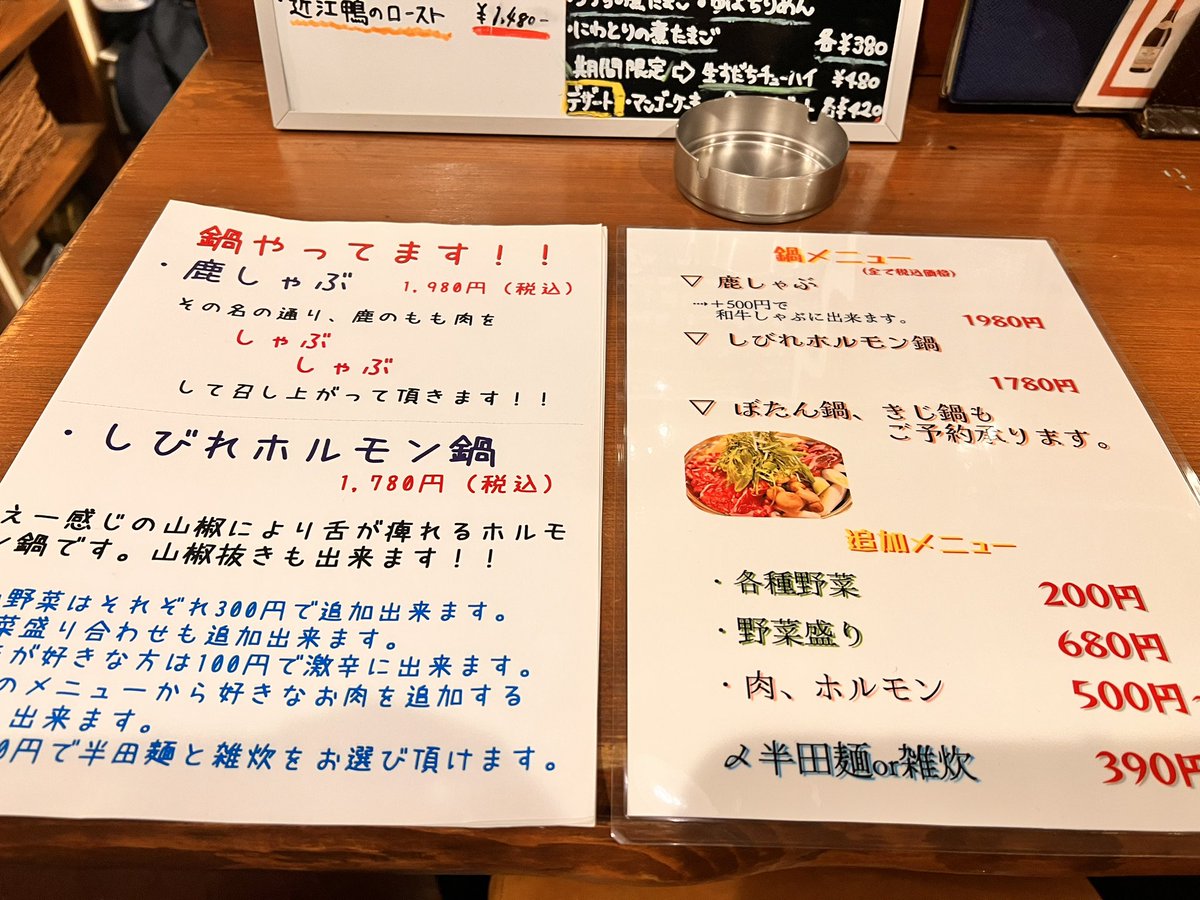 近江鴨のロースト ¥1,480-
・にわとりの煮たまご 各¥380
期間限定⇨生すだちチューハイ ¥480
デザート・マンゴーケーキ 各¥420
鍋やってます！！
・鹿しゃぶ 1,980円（税込）
その名の通り、鹿のもも肉を
しゃぶ
しゃぶ
して召し上がって頂きます！！
・しびれホルモン鍋
1,780円（税込）
え一感じの山椒により舌が痺れるホルモ
ン鍋です。山椒抜きも出来ます！！
野菜はそれぞれ300円で追加出来ます。
菜盛り合わせも追加出来ます。
が好きな方は100円で激辛に出来ます。
のメニューから好きなお肉を追加する
出来ます。
0円で半田麺と雑炊をお選び頂けます。
鍋メニュー
(全て税込価格)
▽ 鹿しゃぶ
⇢＋500円で
和牛しゃぶに出来ます。 1980円
▽ しびれホルモン鍋
1780円
▽ ぼたん鍋、きじ鍋も
ご予約承ります。
追加メニュー
・各種野菜 200円
・野菜盛り 680円
・肉、ホルモン 500円~
〆半田麺or雑炊 390円